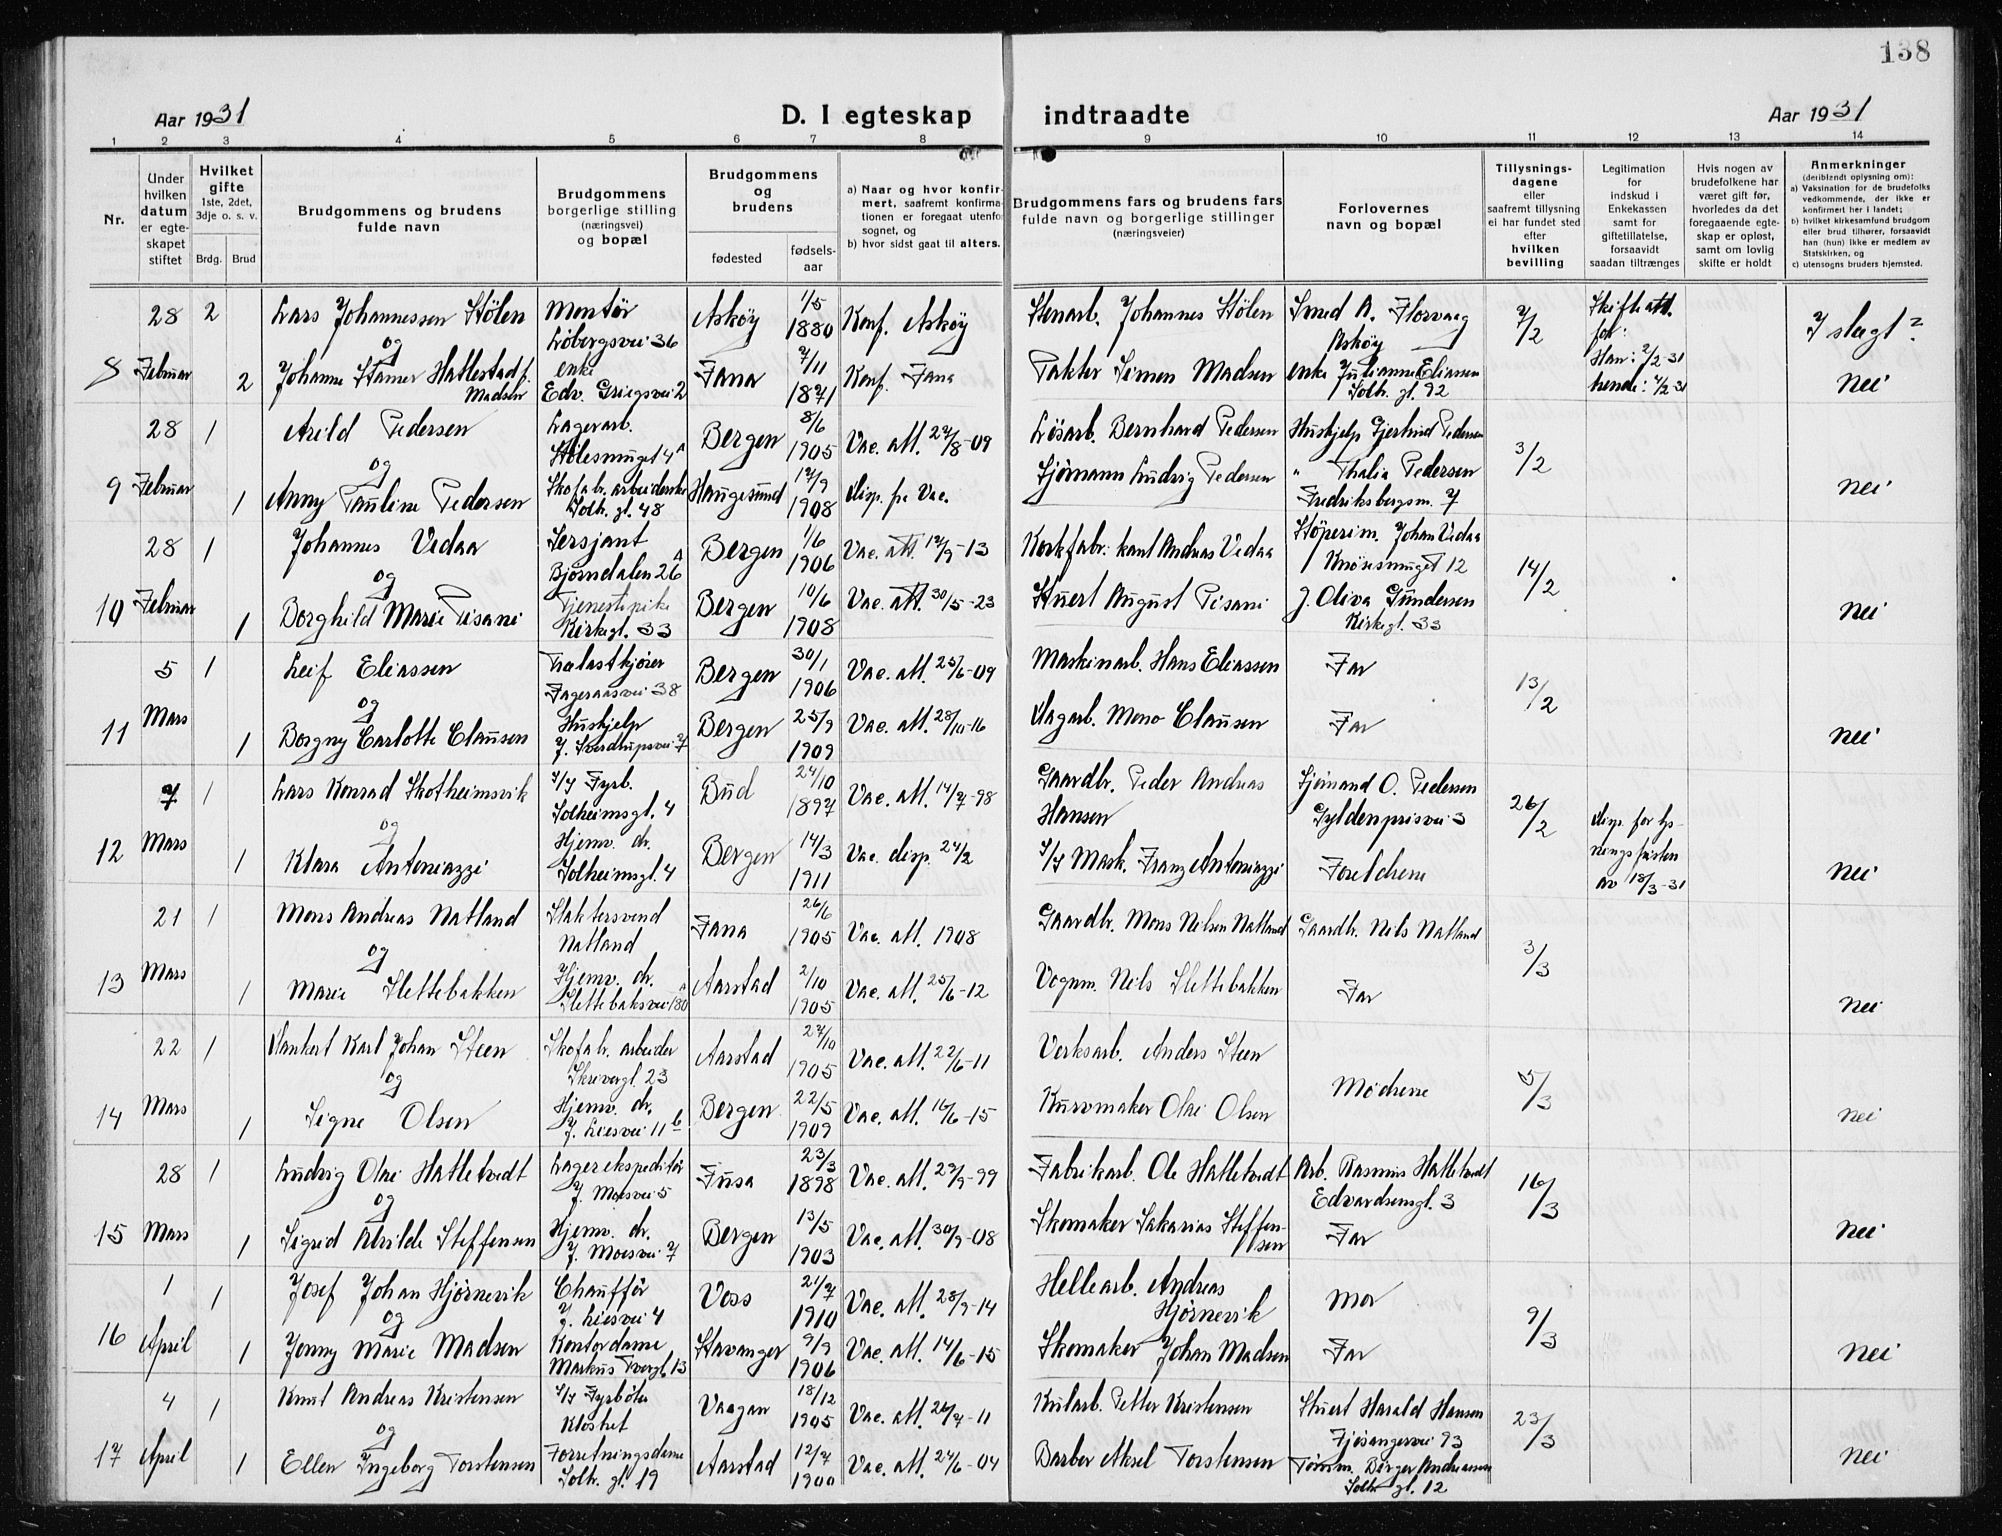 138
Aar 1931
D. I egteskap indtraadte
Aar 1931
1 2 3 4 5 6 7 8 9 10 11 12 13 14
Nr.
Under hvilken datum er egteskapet stiftet
Hvilket gifte 1ste, 2det, 3dje o. s. v.
Brdg. Brud
Brudgommens og brudens fulde navn
Brudgommens borgerlige stilling (næringsvei) og bopæl
Brudgommens og brudens
fødested fødsels-aar
a) Naar og hvor konfirmert, saafremt konfirmationen er foregaat utenfor sognet, og
b) hvor sidst gaat til alters.
Brudgommens fars og brudens fars fulde navn og borgerlige stillinger (næringsveier)
Forlovernes navn og bopæl
Tillysningsdagene eller saafremt tillysning ei har fundet sted efter hvilken bevilling
Legitimation for indskud i Enkekassen samt for giftetillatelse, forsaavidt saadan tiltrænges
Hvis nogen av brudefolkene har været gift før, hvorledes da det foregaaende egteskap er opløst, samt om lovlig skifte er holdt
Anmerkninger (deriblandt oplysning om):
a) Vaksination for de brudefolks vedkommende, der ikke er konfirmert her i landet;
b) hvilket kirkesamfund brudgom eller brud tilhører, forsaavidt han (hun) ikke er medlem av Statskirken, og
c) utensogns bruders hjemsted.
8 28 Februar 2 Lars Johannessen Stølen Montør Løbergsvei 36 Askøy 1/5 1880 Konf. Askøy Stenarb. Johannes Stølen Smed A. Florvaag Askøy 7/2 Skifteatt. for: Han: 2/2-31 I slegt?
og
2 Johanne Stamer Hatlestad f. Madsen enke Edv. Griegsvei 2 Fana 7/11 1871 Konf. Fana Pakter Simon Madsen enke Julianne Eliassen Solh. gt. 92 hende: 4/2-31 nei
9 28 Februar 1 Arild Pedersen Lagerarb. Stølesmuget 4A Bergen 8/6 1905 Vac. att. 27/8-09 Løsarb. Bernhard Pedersen Huskjelp Gjertrud Pedersen 3/2
og
1 Anny Pauline Pedersen Skofabr. arbeiderske Solh. gt. 48 Haugesund 17/9 1908 disp. fr. Vac. Sjømann Ludvig Pedersen " Thalia Pedersen Fredriksbergsm. 7 nei
10 28 Februar 1 Johannes Vedaa Sersjant Bjørndalen 26A Bergen 1/6 1906 Vac. att. 12/9-13 Korkfabrikant Andreas Vedaa Støperim. Johan Vedaa Knøsesmuget 12 14/2
og
1 Borghild Marie Pisani Tjenestepike Kirkegt. 33 Bergen 10/6 1908 Vac. att. 30/5-23 Stuert August Pisani J. Oliva Gundersen Kirkegt. 33 nei
11 5 Mars 1 Leif Eliassen Trelastkjører Fageraasvei 38 Bergen 30/1 1906 Vac. att. 25/6-09 Maskinarb. Hans Eliassen Far 13/2
og
1 Borgny Carlotte Clausen Huskjelp J. Sverdrupsvei 7 Bergen 25/9 1909 Vac. att. 28/10-16 Dagarb. Meno Clausen Far nei
12 7 Mars 1 Lars Konrad Skotheimsvik S/S Fyrb. Solheimsgt. 4 Bud 24/10 1897 Vac. att. 14/7-98 Gaardbr. Peder Andreas Hansen Sjømand O. Pedersen Gyldenprisvei 3 26/2 disp. for lysningsfristen av 18/3-31
og
1 Klara Antoniazzi Hjemv. dr. Solheimsgt. 4 Bergen 14/3 1911 Vac. disp. 24/2 S/S Mask. Franz Antoniazzi Foreldrene nei
13 21 Mars 1 Mons Andreas Natland Slaktersvend Natland Fana 26/6 1905 Vac. att. 1908 Gaardbr. Mons Nilsen Natland Gaardbr. Nils Natland 3/3
og
1 Marie Slettebakken Hjemv. dr. Slettebaksvei 180A Aarstad 2/10 1905 Vac. att. 25/6-12 Vognm. Nils Slettebakken Far nei
14 22 Mars 1 Dankert Karl Johan Steen Skofabr. arbeider Skrivergt. 23 Aarstad 27/10 1905 Vac. att. 22/6-11 Verksarb. Anders Steen Mødrene 5/3
og
1 Signe Olsen Hjemv. dr. J. Liesvei 11b Bergen 22/5 1909 Vac. att. 16/6-15 Kurvmaker Olai Olsen nei
15 28 Mars 1 Ludvig Olai Hatletvedt Lagerekspeditør J. Moesvei 5 Fusa 23/3 1898 Vac. att. 23/9-99 Fabrikarb. Ole Hatletvedt Arb. Rasmus Hatletvedt Edvardsensgt. 3 16/3
og
1 Sigrid Alvilde Steffensen Hjemv. dr. J. Moesvei 7 Bergen 13/5 1903 Vac. att. 30/9-08 Skomaker Sakarias Steffensen Far nei
16 1 April 1 Josef Johan Hjørnevik Chauffør J. Liesvei 4 Voss 21/7 1910 Vac. att. 28/9-14 Hellearb. Andreas Hjørnevik Mor 9/3
og
1 Jenny Marie Madsen Kontordame Markus Tvergt. 13 Stavanger 9/9 1906 Vac. att. 14/6-15 Skomaker Johan Madsen Far nei
17 4 April 1 Knut Andreas Kristensen S/S Fyrbøter Klostret Vaagan 18/12 1905 Vac. att. 26/7-11 Kularb. Petter Kristensen Stuert Harald Hansen Fjøsangervei 93 23/3
og
1 Ellen Ingeborg Torstensen Forretningsdame Solh. gt. 19 Aarstad 12/7 1900 Vac. att. 24/6-04 Barber Aksel Torstensen Tømm. Berger Andreassen Solh. gt. 12 nei